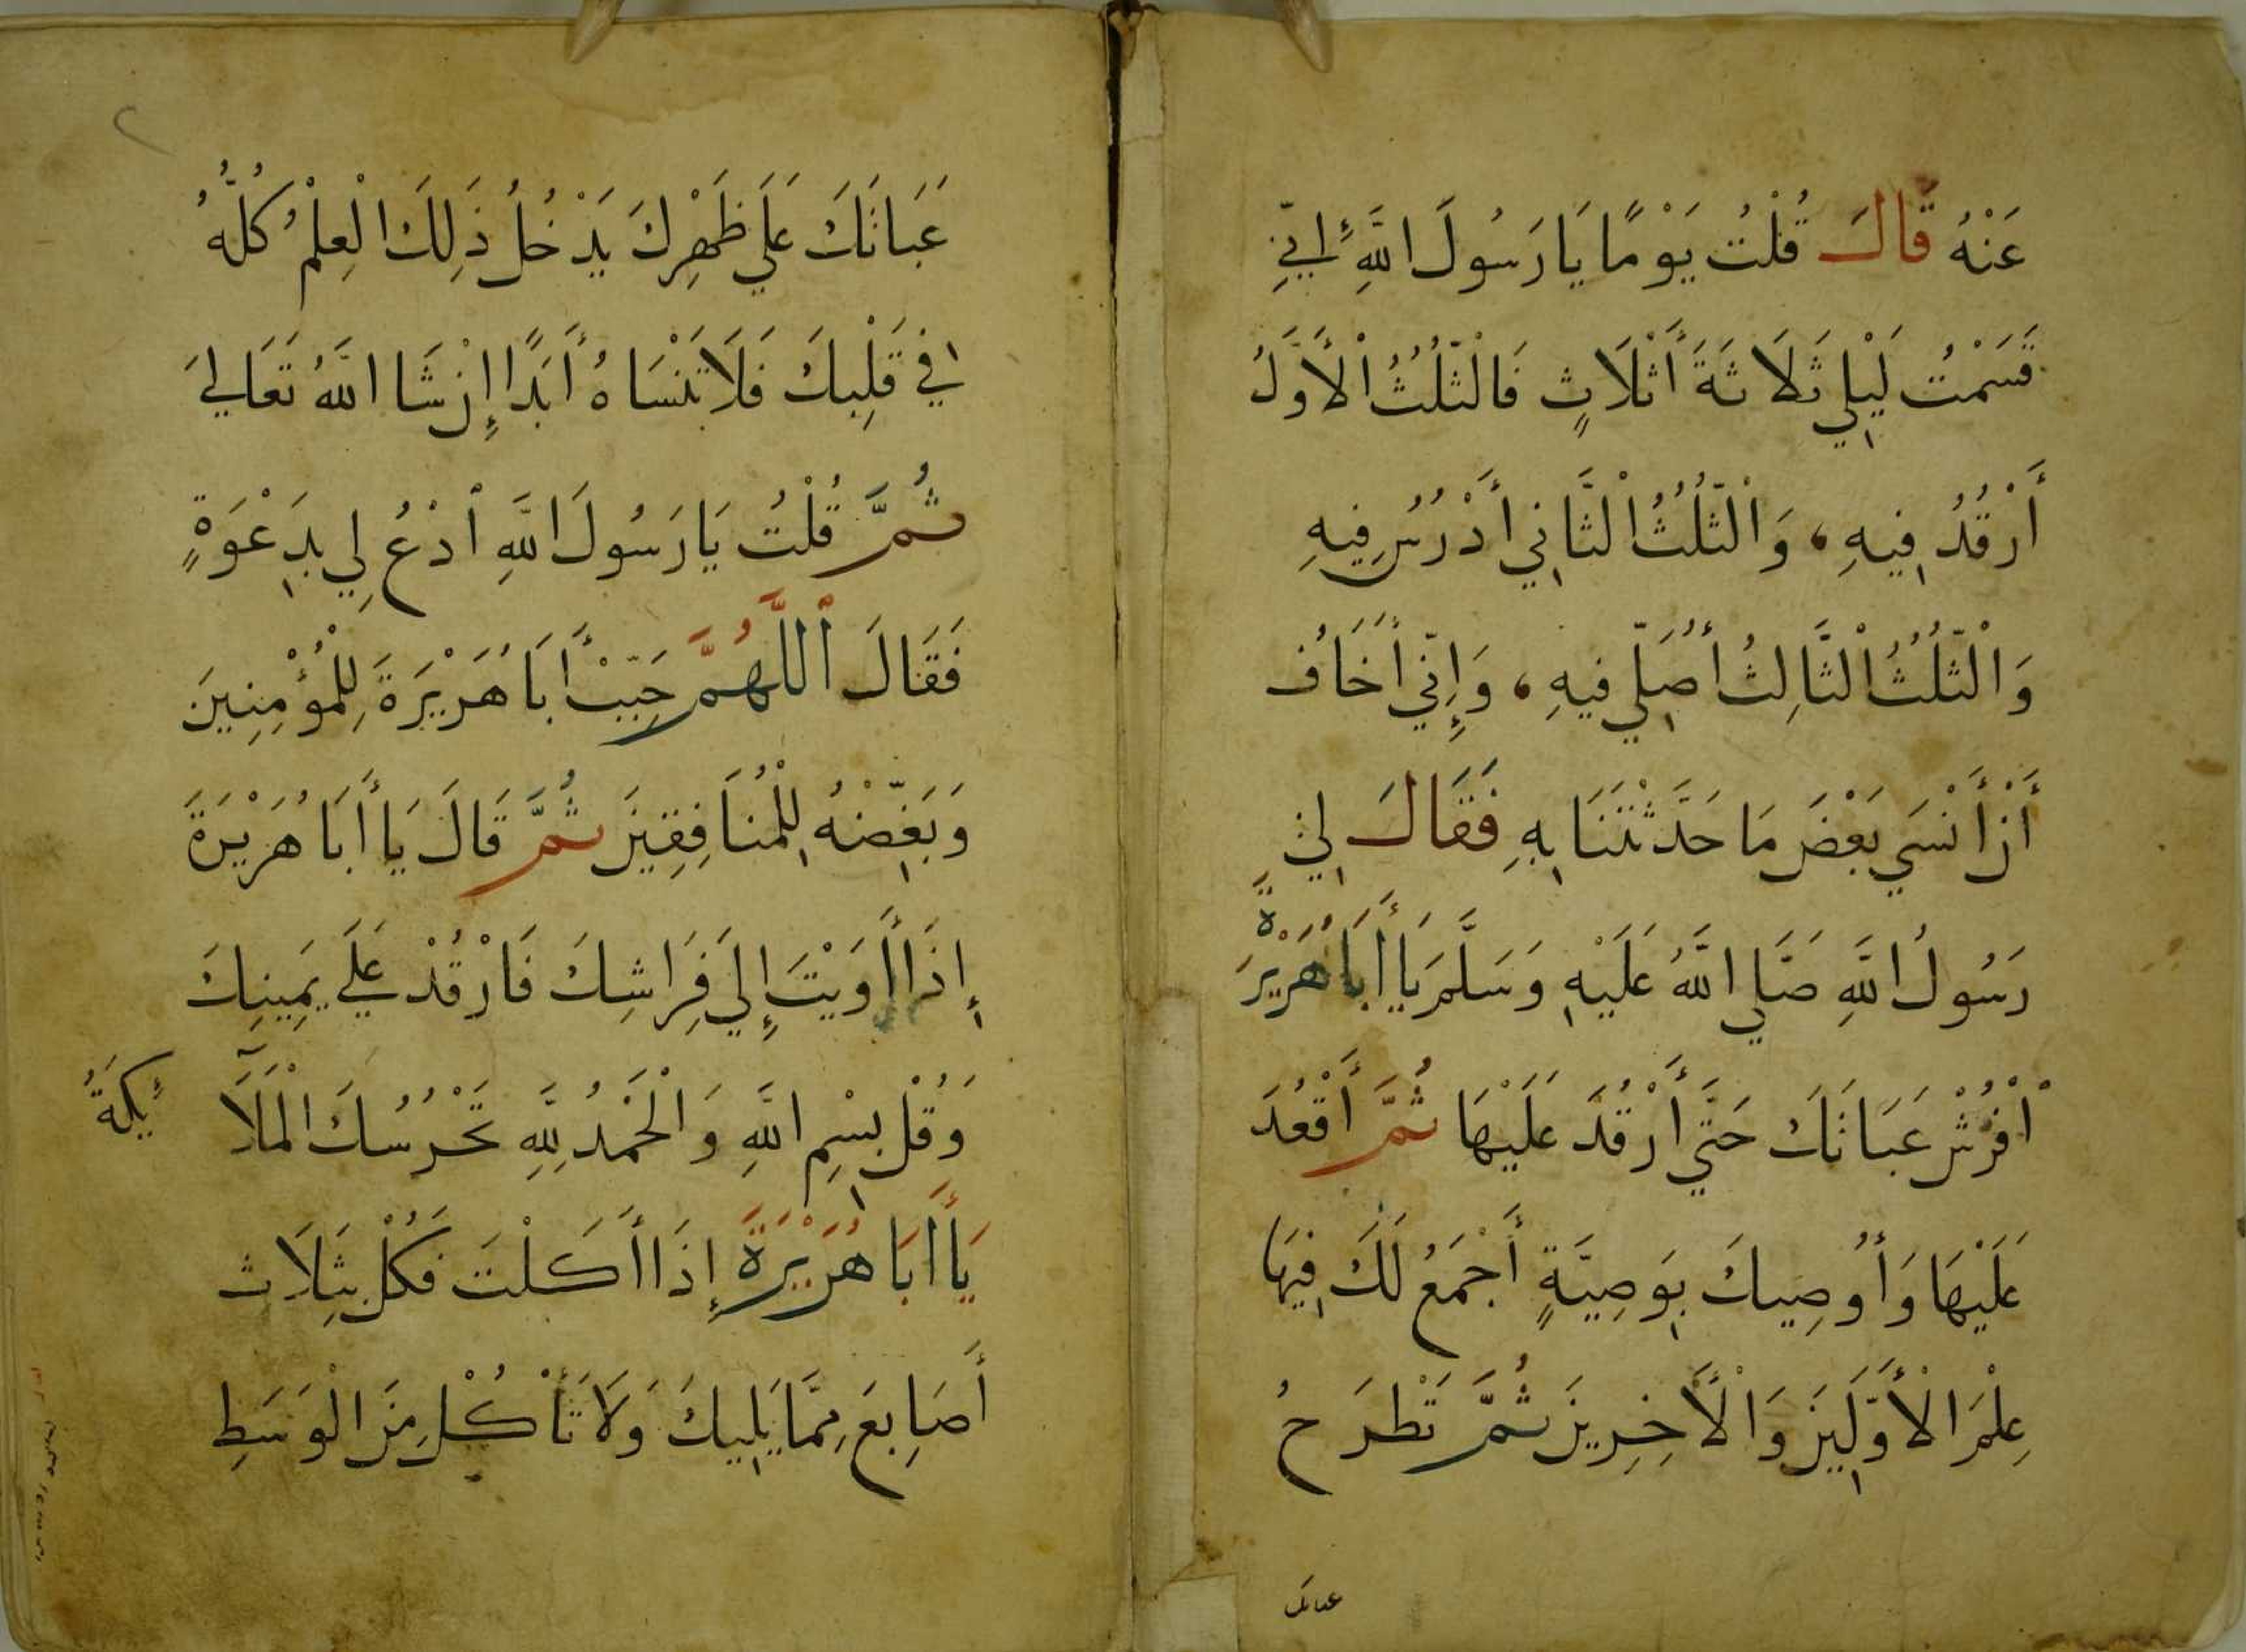 عَنْهُ قَالَ قُلْتُ يَوْمًا يَا رَسُولَ اللَّهِ إِنِّي
قَسَمْتُ لَيْلِي ثَلَاثَةَ أَثْلَاثٍ فَالثُّلُثُ الْأَوَّلُ
أَرْقُدُ فِيهِ، وَالثُّلُثُ الثَّانِي أَدْرُسُ فِيهِ
وَالثُّلُثُ الثَّالِثُ أُصَلِّي فِيهِ، وَإِنِّي أَخَافُ
أَنْ أَنْسَى بَعْضَ مَا حَدَّثْتَنَا بِهِ فَقَالَ لِي
رَسُولُ اللَّهِ صَلَّى اللَّهُ عَلَيْهِ وَسَلَّمَ يَا أَبَا هُرَيْرَةٍ
اْفْرُشْ عَبَاتَكَ حَتَّى أَرْقُدَ عَلَيْهَا ثُمَّ أَقْعُدَ
عَلَيْهَا وَأُوصِيكَ بِوَصِيَّةٍ أَجْمَعُ لَكَ فِيهَا
عِلْمَ الْأَوَّلِينَ وَالْأَخِرِينَ ثُمَّ تَطْرَحُ
عباتك
٢
عَبَاتَكَ عَلَى ظَهْرِكَ يَدْخُلُ ذَلِكَ الْعِلْمُ كُلُّهُ
فِي قَلْبِكَ فَلَا تَنْسَاهُ أَبَدًا إِنْ شَا اللَّهُ تَعَالَى
ثُمَّ قُلْتُ يَا رَسُولَ اللَّهِ اْدْعُ لِي بِدَعْوَةٍ
فَقَالَ اللَّهُمَّ حَبِّبْ أَبَا هُرَيْرَةَ لِلْمُؤْمِنِينَ
وَبَغِّضْهُ لِلْمُنَافِقِينَ ثُمَّ قَالَ يَا أَبَا هُرَيْرَةَ
إِذَا أَوَيْتَ إِلَى فِرَاشِكَ فَارْقُدْ عَلَى يَمِينِكَ
وَقُلْ بِسْمِ اللَّهِ وَالْحَمْدُ لِلَّهِ تَحْرُسُكَ الْمَلَآئِكَةُ
يَا أَبَا هُرَيْرَةَ إِذَا أَكَلْتَ فَكُلْ بِثَلَاث
أَصَابِعَ مِمَّا يَلِيكَ وَلَا تَأْكُلْ مِنَ الْوَسَطِ